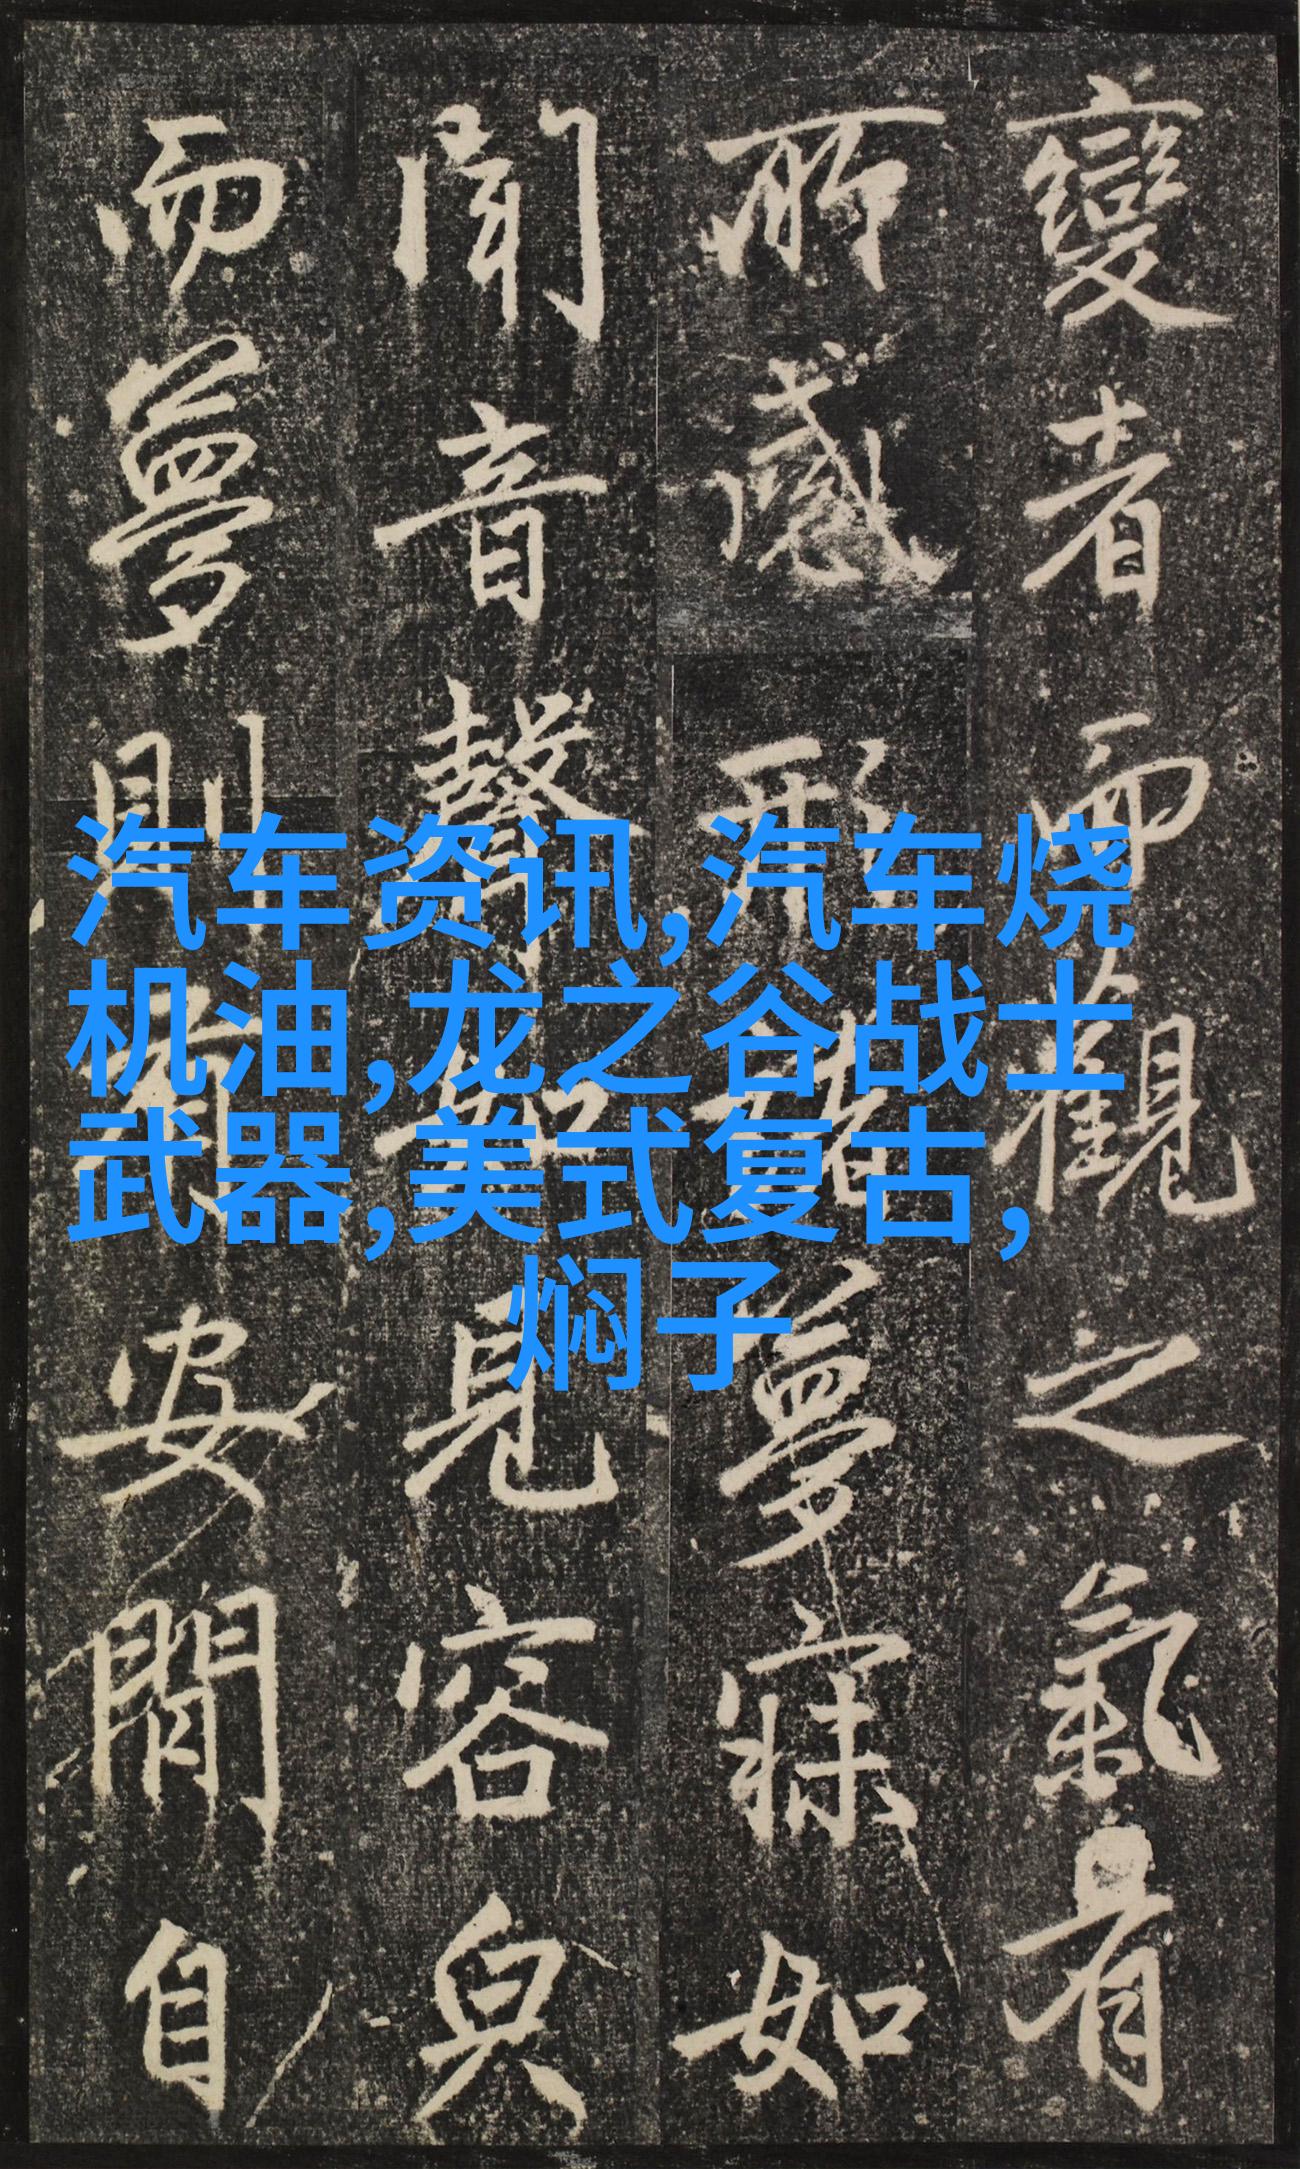 變者而觀之氣有
所感形諸夢寐如
聞音聲如見容皃
而夢則爾安閒自
汽车资讯,汽车烧
机油,龙之谷战士
武器,美式复古,
焖子